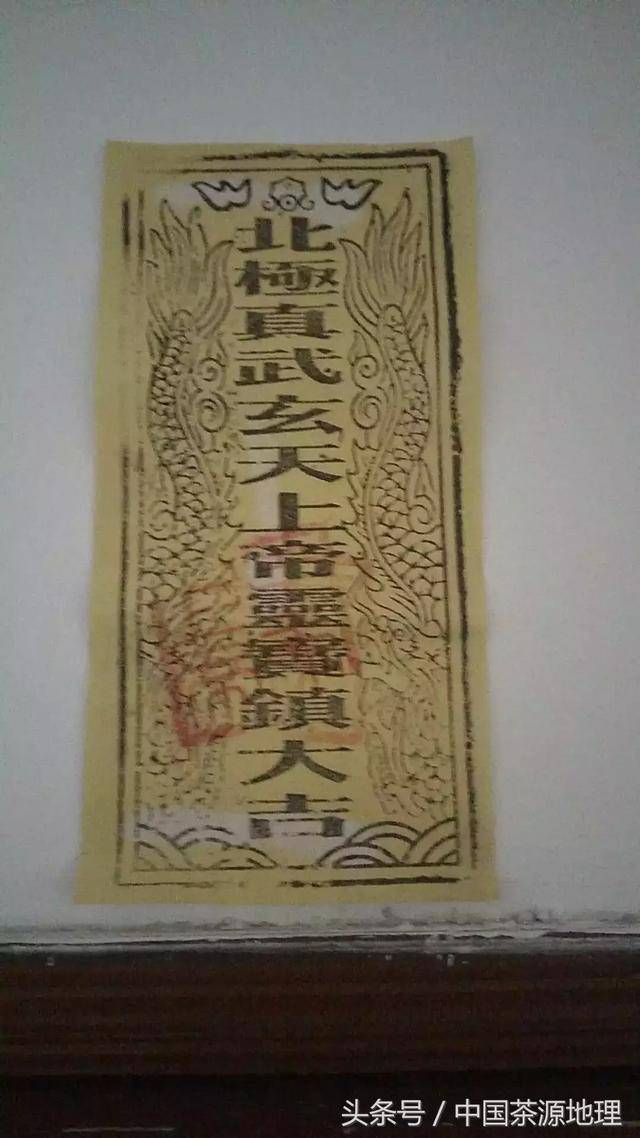 北極真武玄天上帝靈寶鎮大吉
头条号／中国茶源地理